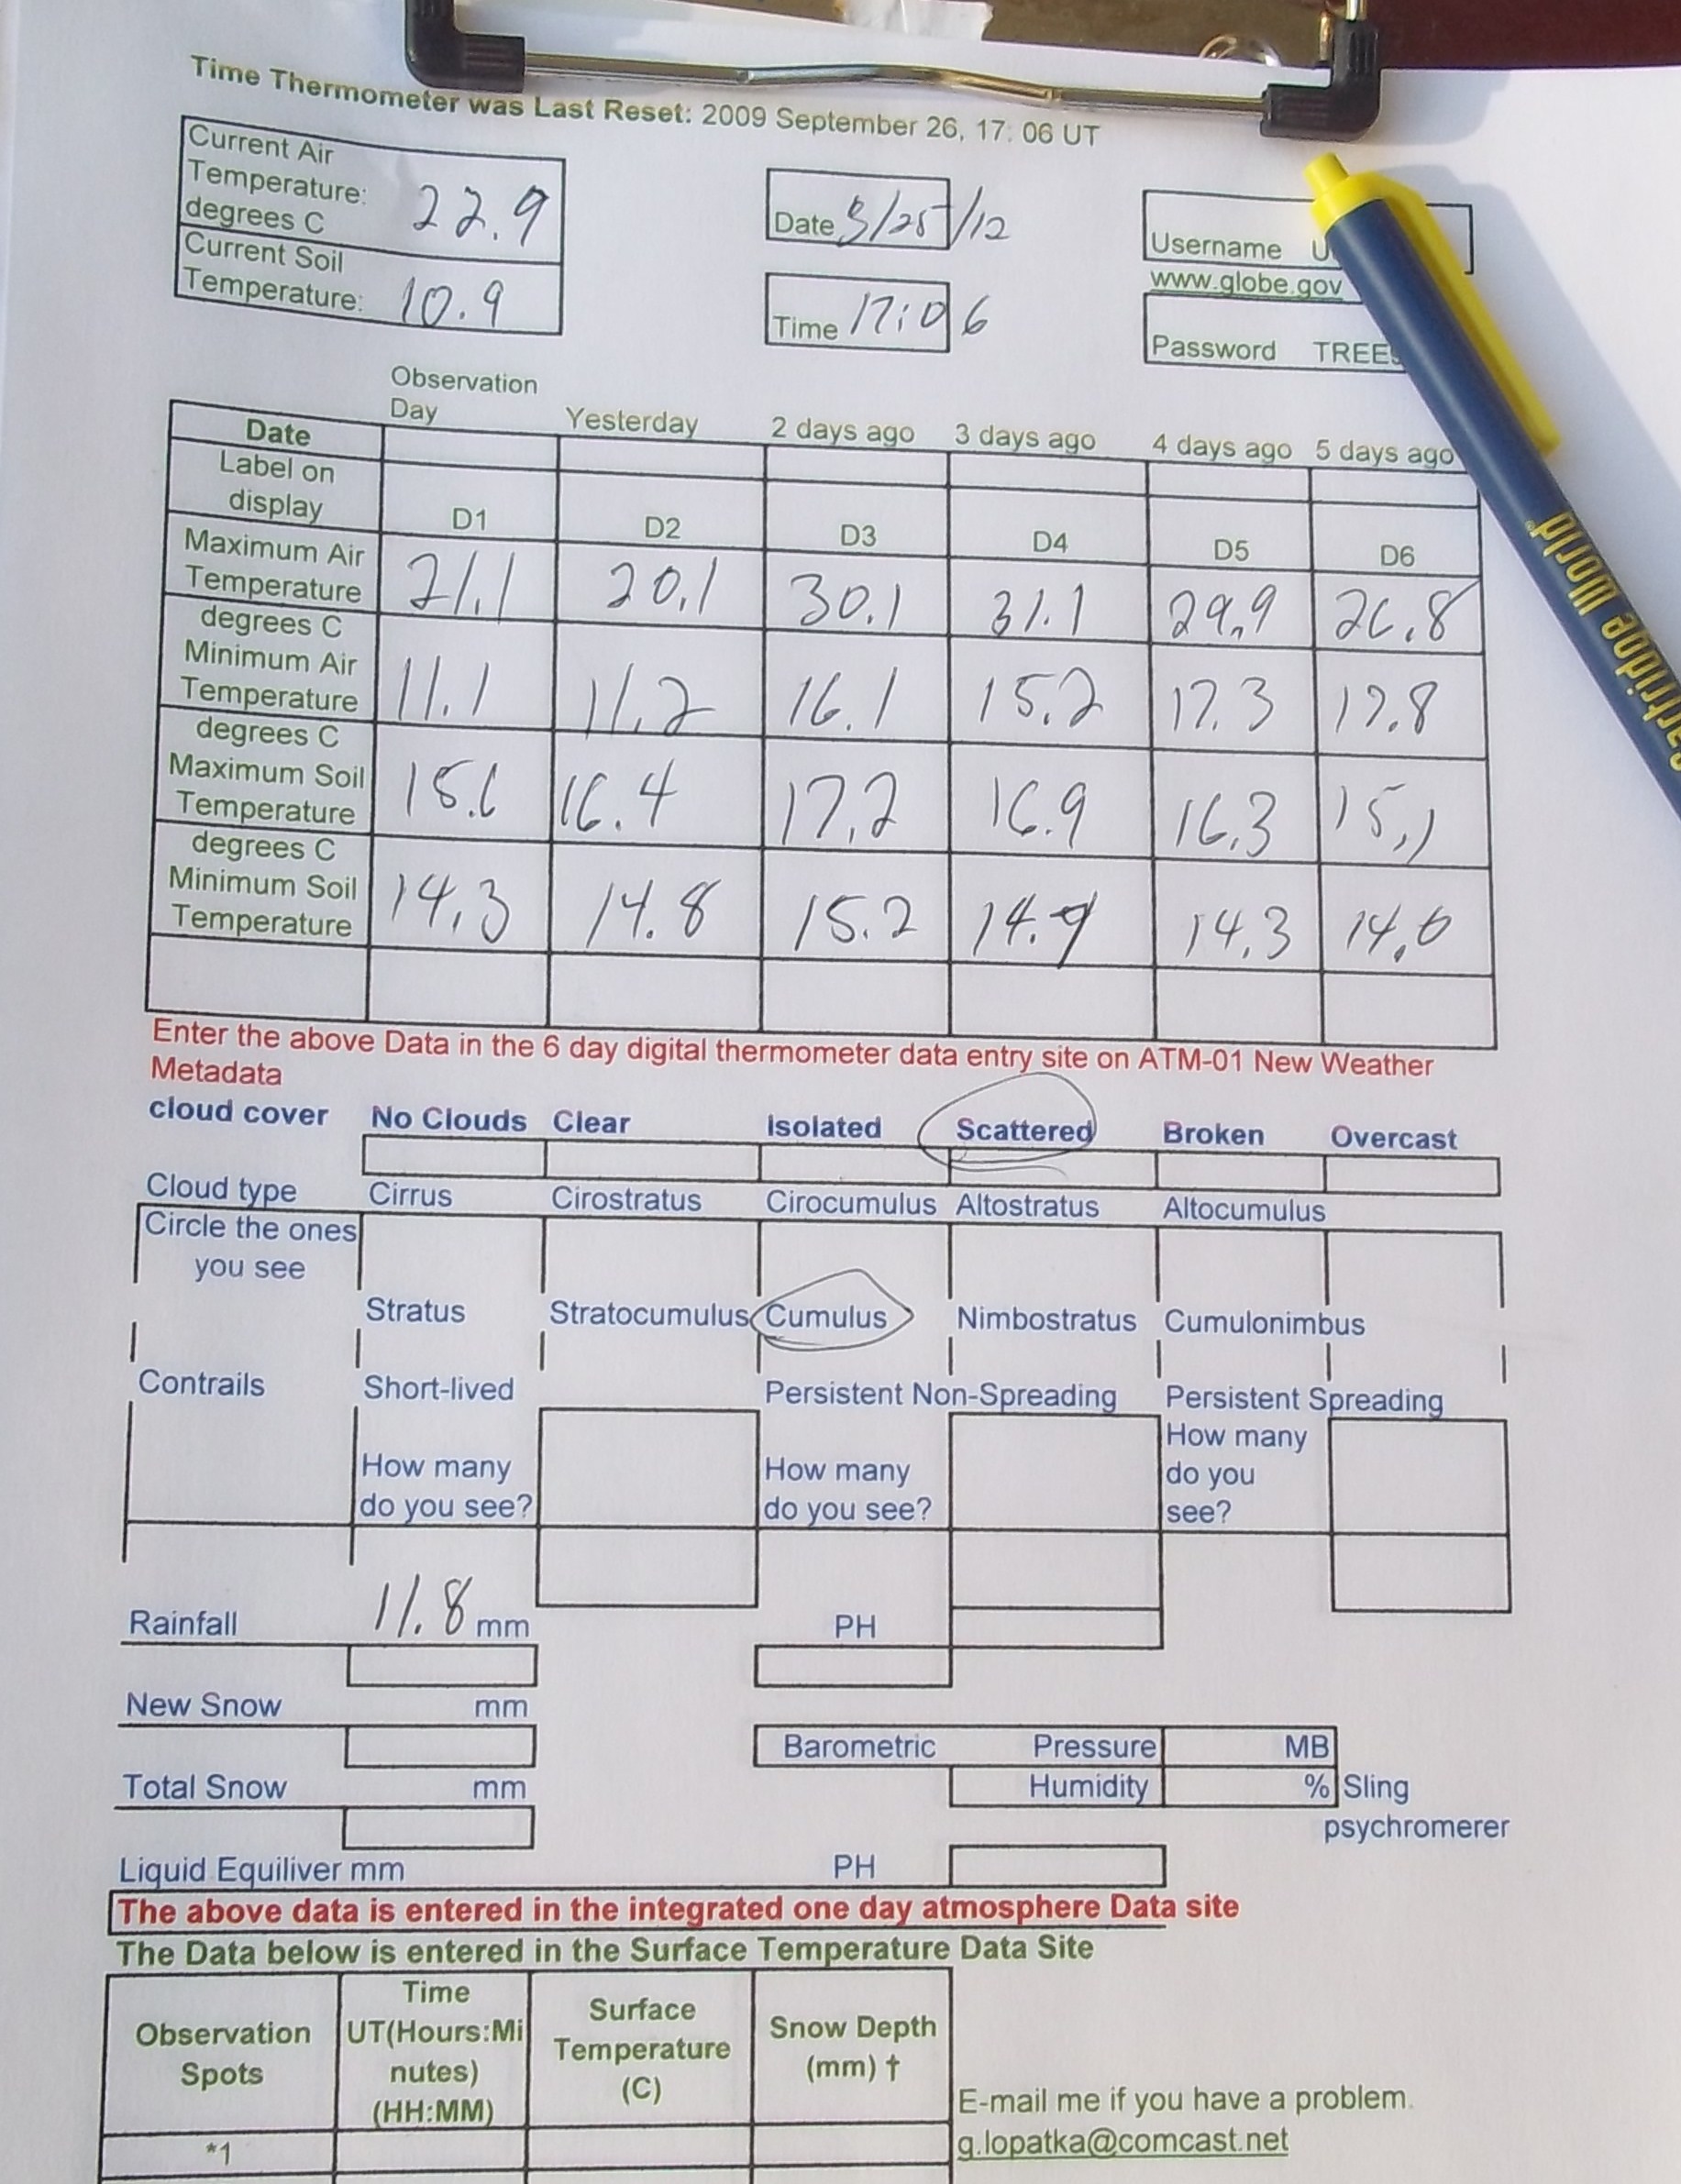 Time Thermometer was Last Reset: 2009 September 26, 17: 06 UT
Current Air
Temperature:
degrees C 22.9
Current Soil
Temperature: 10.9
Date 3/25/12
Time 17:06
Username
www.globe.gov
Password TREES
Observation
Day Yesterday 2 days ago 3 days ago 4 days ago 5 days ago
Date
Label on
display D1 D2 D3 D4 D5 D6
Maximum Air
Temperature 21.1 20.1 30.1 31.1 29.9 26.8
degrees C
Minimum Air
Temperature 11.1 11.2 16.1 15.2 17.3 17.8
degrees C
Maximum Soil
Temperature 15.6 16.4 17.2 16.9 16.3 15.1
degrees C
Minimum Soil
Temperature 14.3 14.8 15.2 14.9 14.3 14.0
Enter the above Data in the 6 day digital thermometer data entry site on ATM-01 New Weather
Metadata
cloud cover No Clouds Clear Isolated Scattered Broken Overcast
Cloud type Cirrus Cirostratus Cirocumulus Altostratus Altocumulus
Circle the ones
you see
Stratus Stratocumulus Cumulus Nimbostratus Cumulonimbus
Contrails Short-lived Persistent Non-Spreading Persistent Spreading
How many
do you see?
How many
do you see?
How many
do you
see?
Rainfall 11.8 mm PH
New Snow mm
Barometric Pressure MB
Total Snow mm Humidity % Sling
psychromerer
Liquid Equiliver mm PH
The above data is entered in the integrated one day atmosphere Data site
The Data below is entered in the Surface Temperature Data Site
Observation
Spots
Time
UT(Hours:Mi
nutes)
(HH:MM)
Surface
Temperature
(C)
Snow Depth
(mm) †
E-mail me if you have a problem.
g.lopatka@comcast.net
*1
Cartridge World